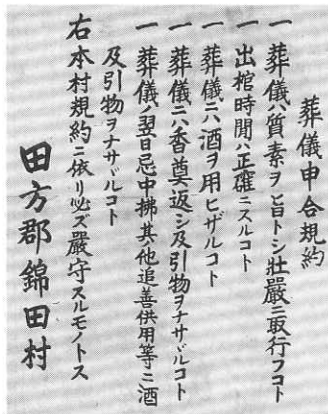 葬儀申合規約
一 葬儀ハ質素ヲ旨トシ壮嚴ニ取行フコト
一 出棺時間ハ正確ニスルコト
一 葬儀ニハ酒ヲ用ヒザルコト
一 葬儀ニハ香奠返シ及引物ヲナサヾルコト
一 葬儀ノ翌日忌中拂其他追善供用等ニ酒
及引物ヲナサヾルコト
右本村規約ニ依リ必ズ嚴守スルモノトス
田方郡錦田村